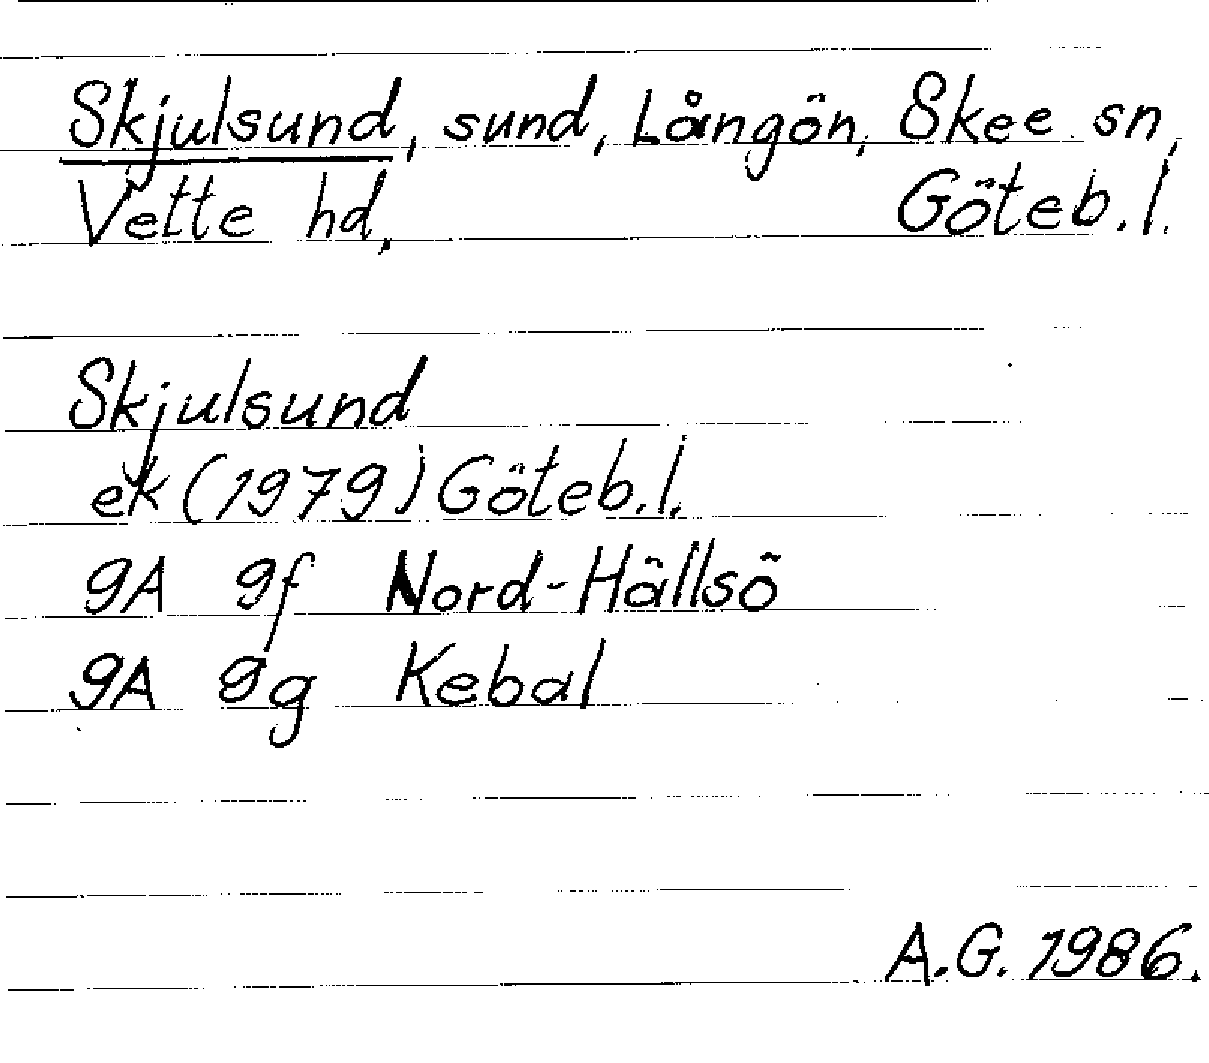 Skjulsund, sund, Långön, Skee sn,
Vette hd, Göteb. l.
Skjulsund
ek (1979) Göteb. l.
9A 9f Nord-Hällsö
9A 9g Kebal
A.G. 1986.